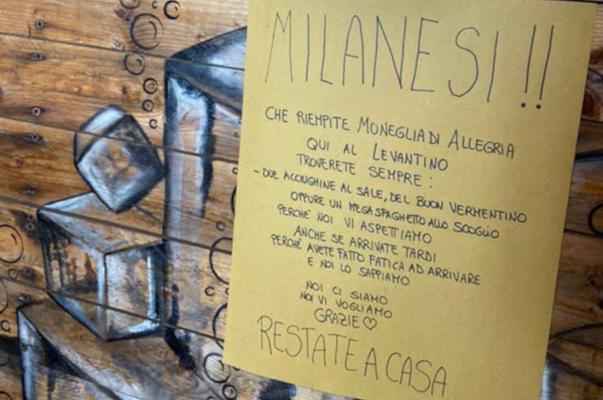 MILANESI!!
CHE RIEMPITE MONEGLIA DI ALLEGRIA
QUI AL LEVANTINO
TROVERETE SEMPRE:
- DUE ACCIUGHINE AL SALE, DEL BUON VERMENTINO
OPPURE UN MEGA SPAGHETTO ALLO SCOGLIO
PERCHÉ NOI VI ASPETTIAMO
ANCHE SE ARRIVATE TARDI
PERCHÉ AVETE FATTO FATICA AD ARRIVARE
E NOI LO SAPPIAMO
NOI CI SIAMO
NOI VI VOGLIAMO
GRAZIE♡
RESTATE A CASA